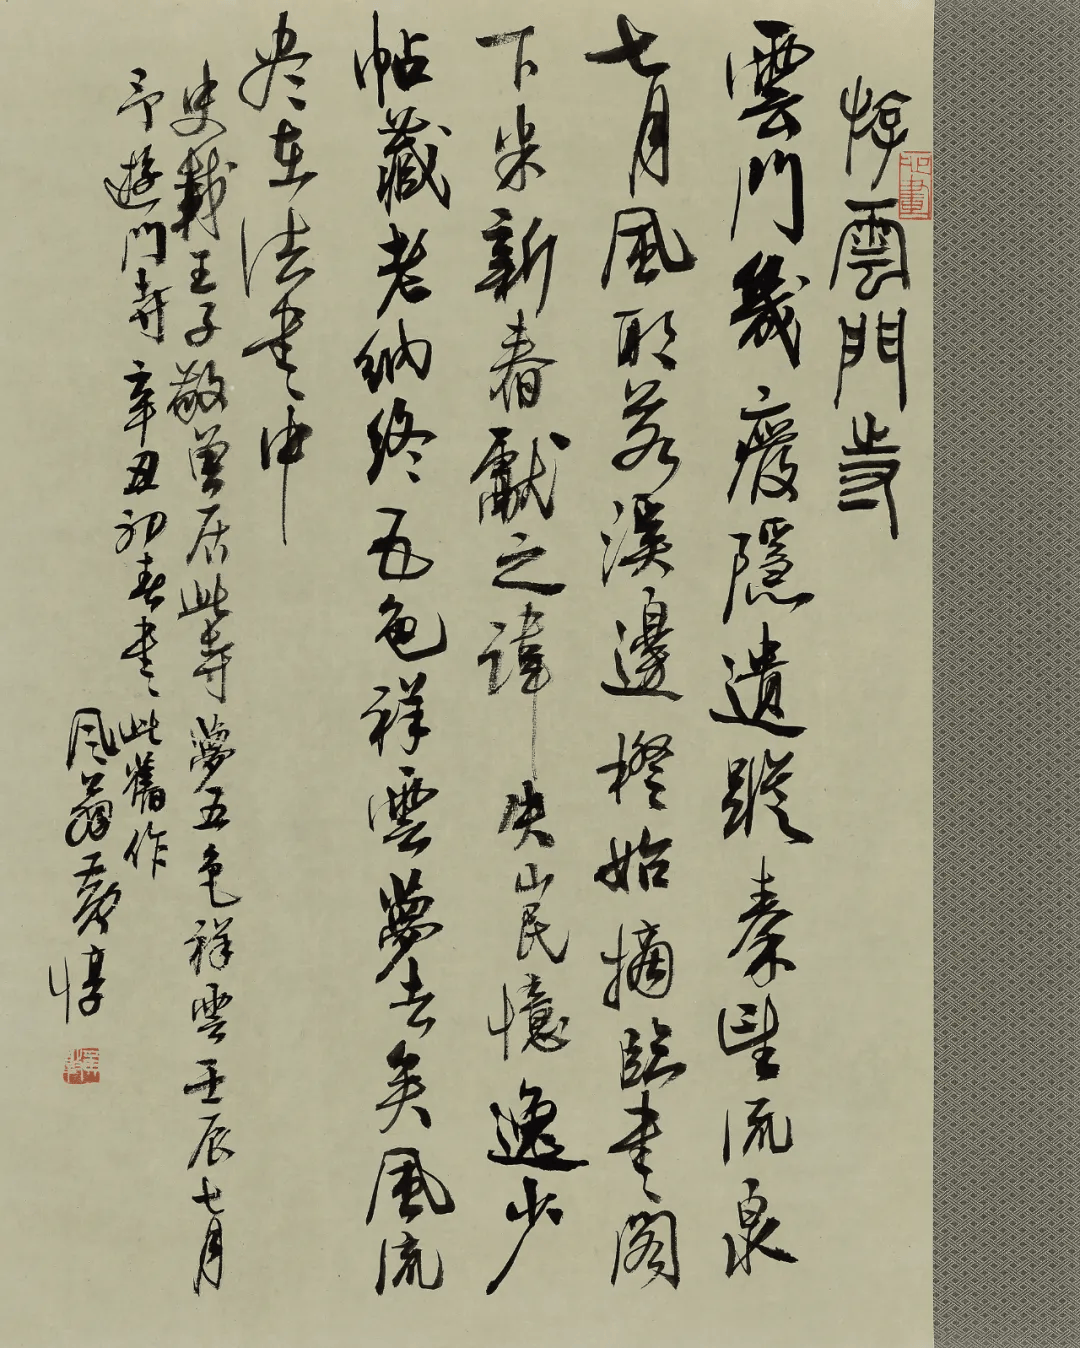 游雲門寺
雲門幾廢隱遺蹤秦望流泉
七月風耶若溪邊橙始摘臨書閣
下米新舂獻之諱失山民憶逸少
帖藏老納終五色祥雲夢去矣風流
尽在法書中
史載王子敬曾居此寺夢五色祥雲壬辰七月
予遊門寺辛丑初春書此舊作
風翁黄惇